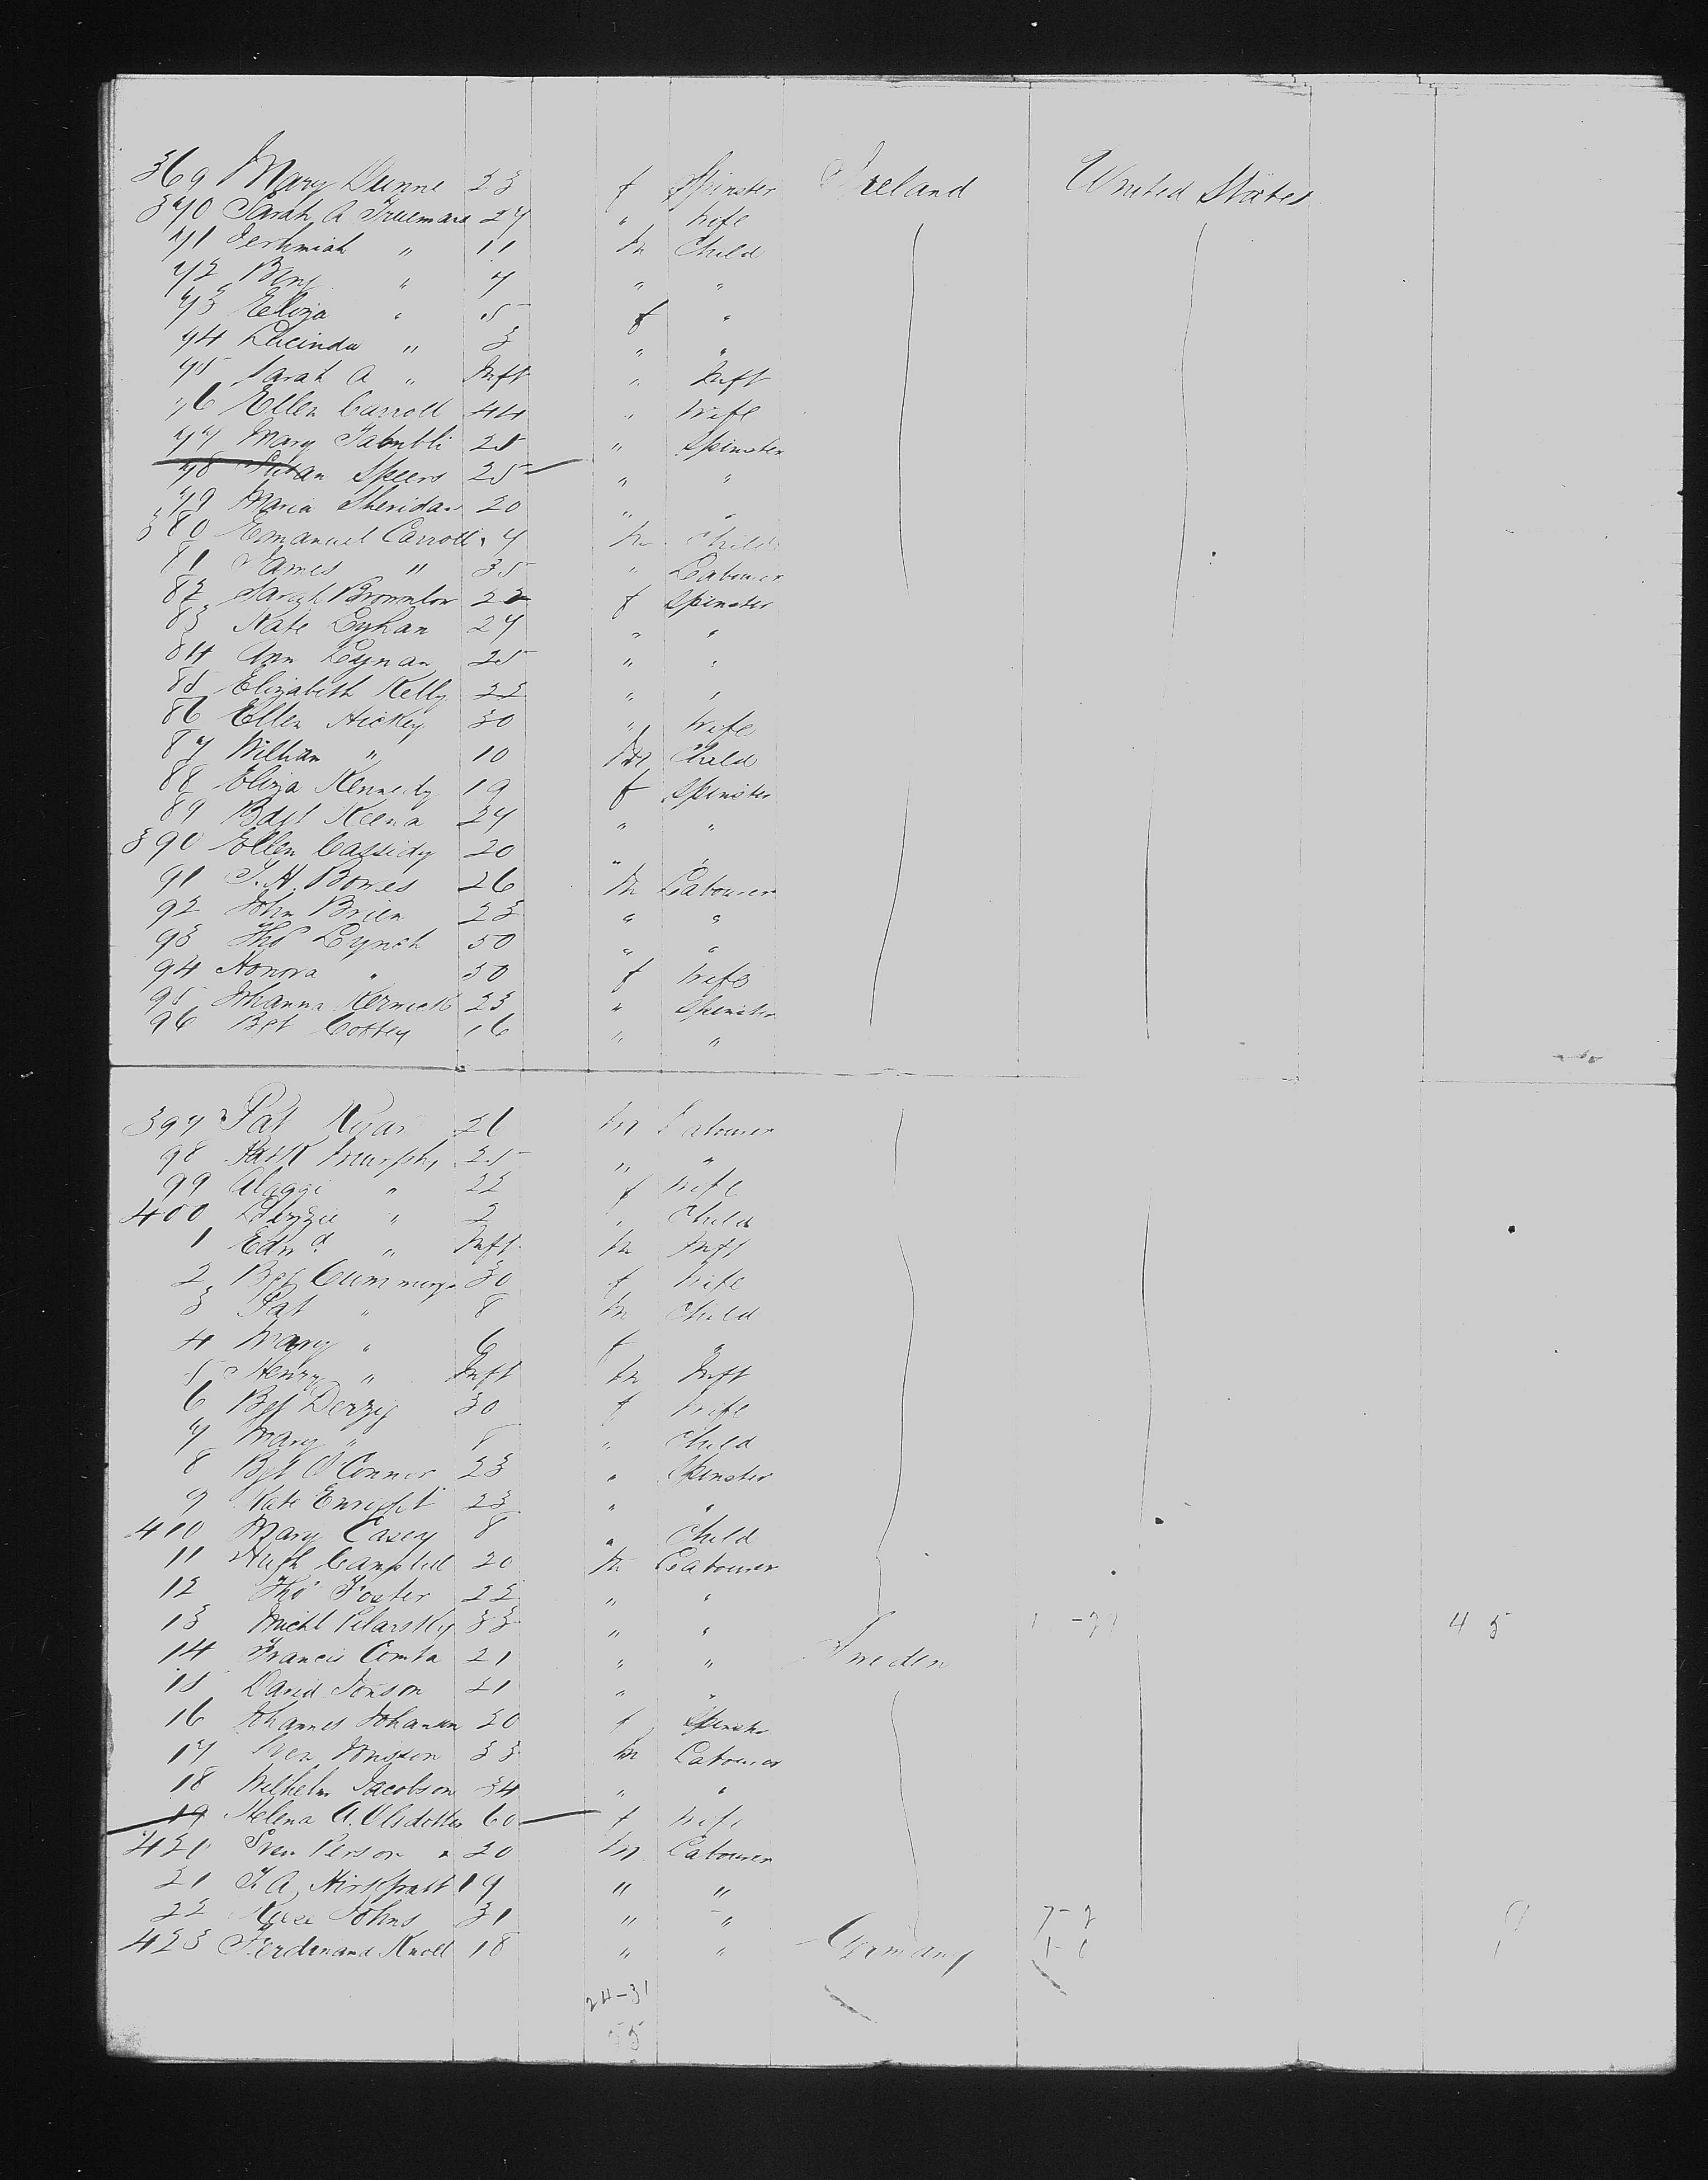 369 Mary Dunne 23 f Spinster Ireland United States
370 Sarah A Trueman 27 " Wife
71 Jerhmiah " 11 m Child
72 Benj " 7 " "
73 Eliza " 5 f "
74 Lucinda " 3 " "
75 Sarah A " Inft " Inft
76 Ellen Carroll 44 " Wife
77 Mary 25 " Spinster
78 Susan Speers 25 " "
79 Maria Sheridan 20 " "
380 Emanuel Carroll 7 m Child
81 James " 35 " Labourer
82 Sarah Brownlow 22 f Spinster
83 Kate Lyhan 27 " "
84 Ann Lynan 25 " "
85 Elizabeth Kelly 22 " "
86 Ellen Hickey 30 " Wife
87 William " 10 M Child
88 Eliza Kennedy 19 f Spinster
89 Bdgt Keena 27 " "
390 Ellen Cassidy 20 " "
91 T. H. Bowes 26 m Labourer
92 John Brien 23 " "
93 Thos Lynch 50 " "
94 Honora " 50 f Wife
95 Johanna 23 " Spinster
96 Bgt Cottey 16 " "
397 Pat 26 m Labourer
98 Patk Murphy 25 " "
99 Maggi " 22 f Wife
400 Lizzie " 2 " Child
1 Edwd " Inft m Inft
2 Bgt Cummings 30 f Wife
3 Pat " 8 m Child
4 Mary " 6 f "
5 Henry " Inft m Inft
6 Bgt Derzig 30 f Wife
7 Mary " 8 " Child
8 Bgt O'Connor 23 " Spinster
9 Kate Enright 23 " "
410 Mary Casey 8 " Child
11 Hugh Campbell 20 m Labourer
12 Thos Foster 22 " "
13 Michl Pilarsky 33 " " 4 5
14 Francis Comta 21 " " Sweden
15 David Jonson 21 " "
16 Johannes Johansen 20 f Spinster
17 Sven 33 m Labourer
18 Wilhelm Jacobson 34 " "
19 Helena A. Olsdotter 60 f Wife
420 Sven Person 20 m Labourer
21 19 " "
22 Johns 31 " " 7-2
423 Ferdinand Knoll 18 " " Germany
24-31
55